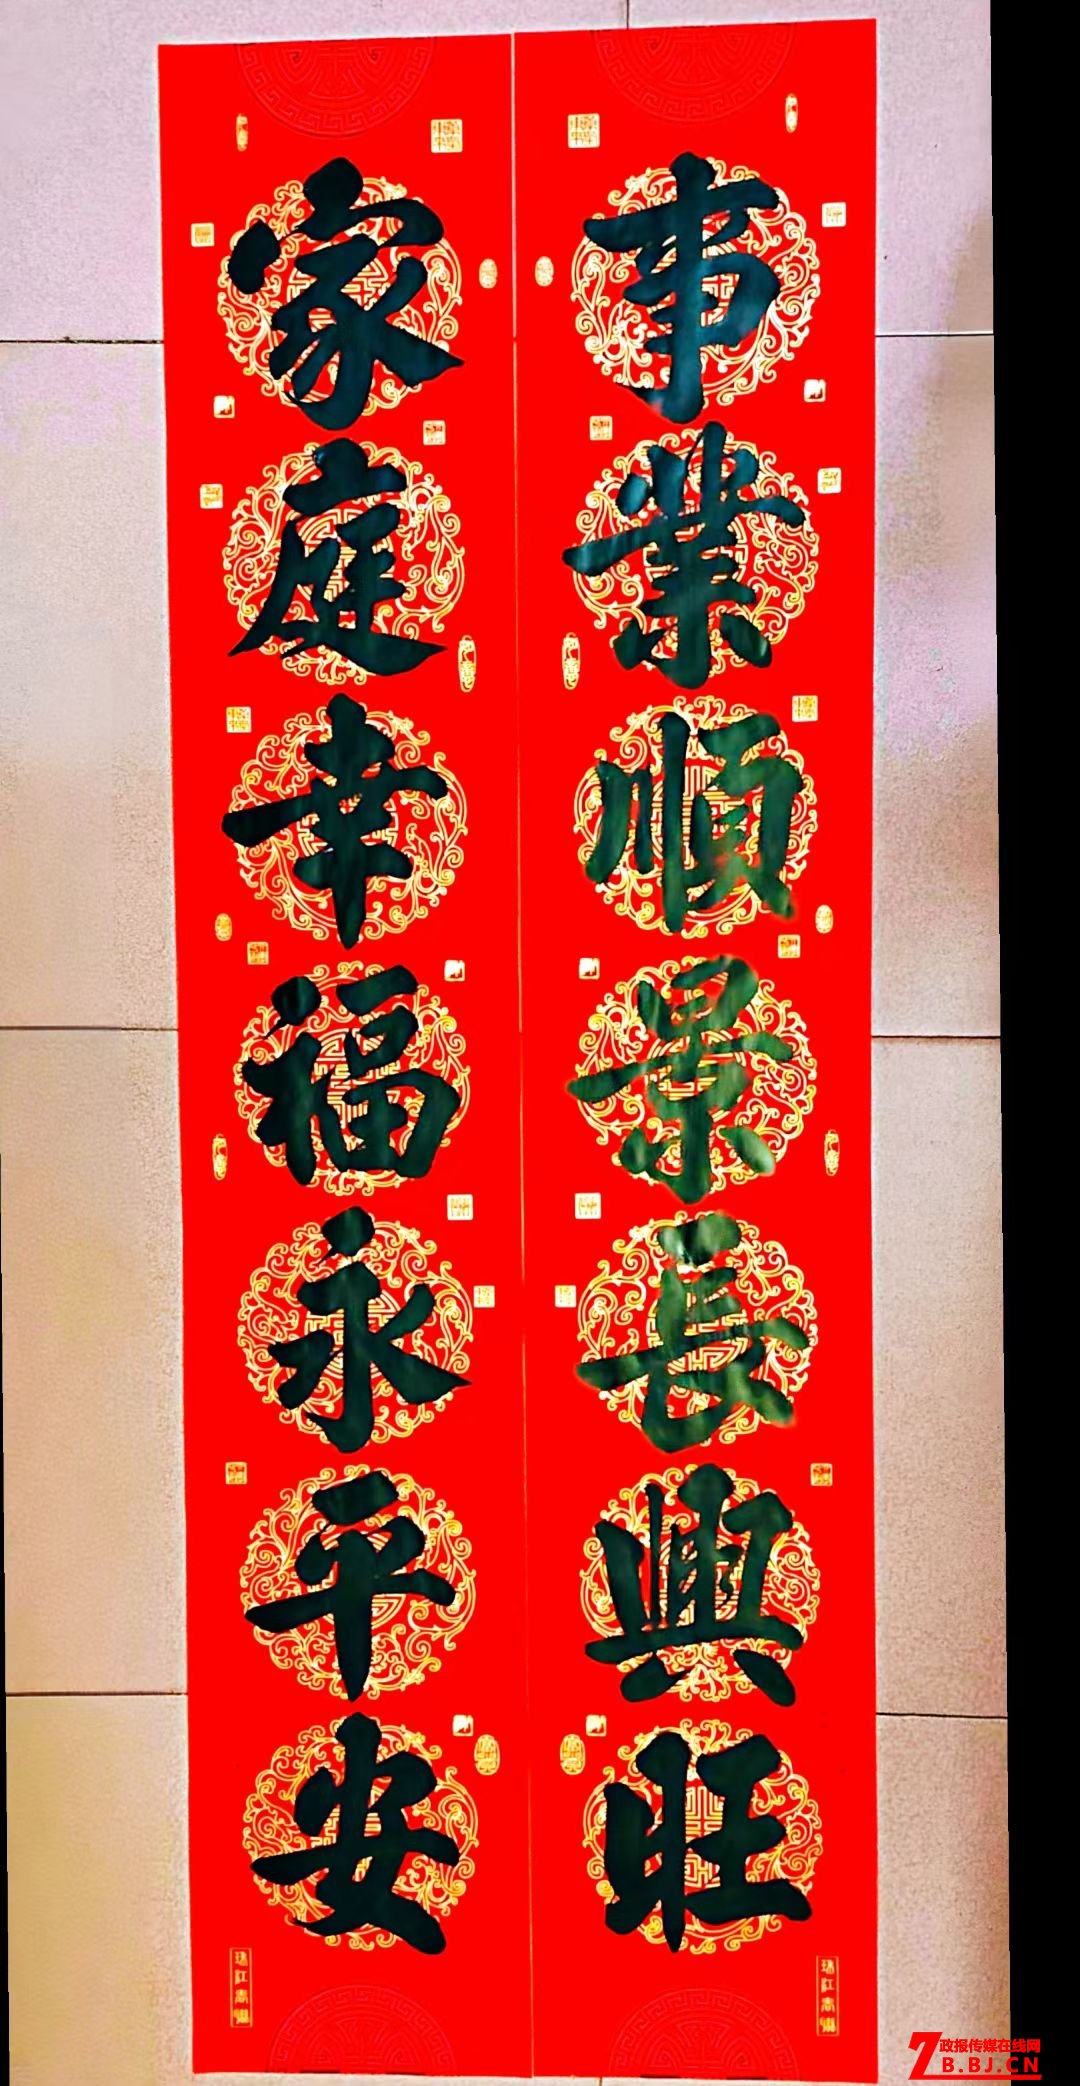 事業順景長興旺
家庭幸福永平安
政报传媒在线网
B.BJ.CN